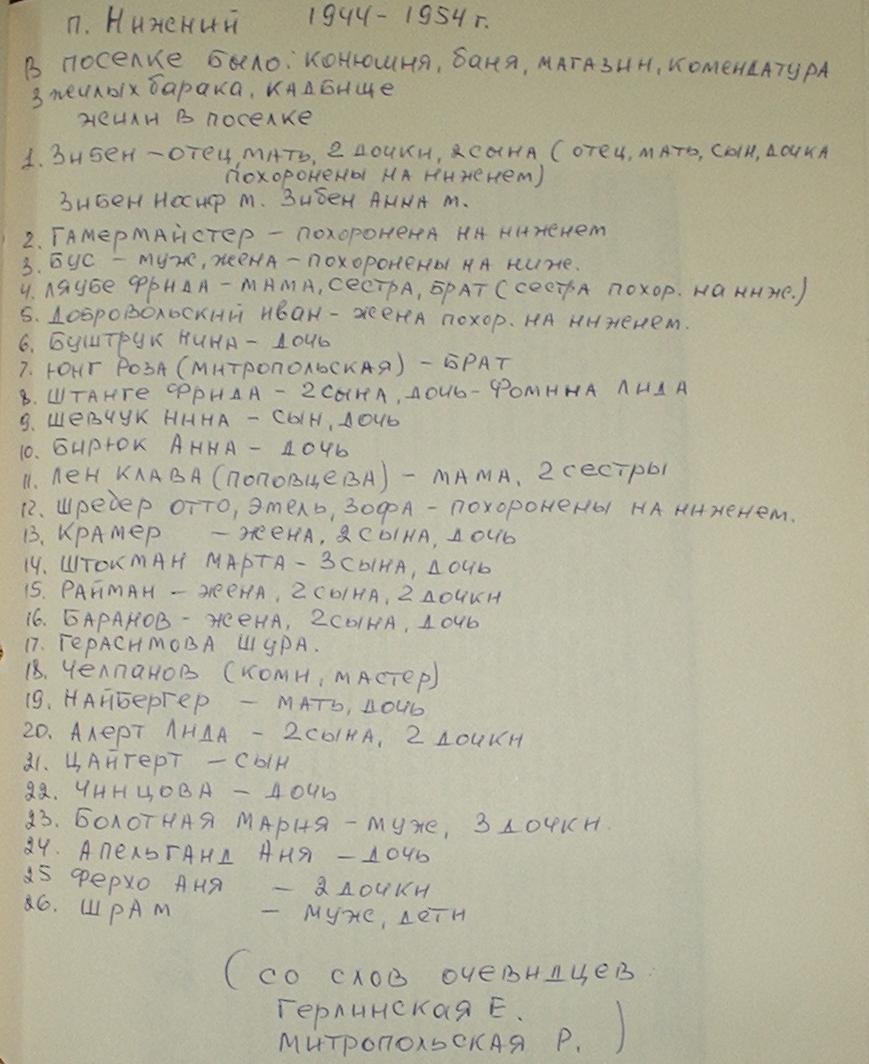 п. Нижний 1944-1954 г.
В поселке было: конюшня, баня, магазин, комендатура
3 жилых барака, кадбище
жили в поселке
1. Зибен – отец, мать, 2 дочки, 2 сына (отец, мать, сын, дочка
похоронены на нижнем)
Зибен Иосиф М. Зибен Анна М.
2. Гамермайстер – похоронена на нижнем
3. Бус – муж, жена – похоронены на ниж.
4. Ляубе Фрида – мама, сестра, брат (сестра похор. на ниж.)
5. Добровольский Иван – жена похор. на нижнем.
6. Буштрук Нина – дочь
7. Юнг Роза (Митропольская) – брат
8. Штанге Фрида – 2 сына, дочь – Фомина Лида
9. Шевчук Нина – сын, дочь
10. Бирюк Анна – дочь
11. Лен Клава (Поповцева) – мама, 2 сестры
12. Шредер Отто, Эмель, Зофа – похоронены на нижнем.
13. Крамер – жена, 2 сына, дочь
14. Штокман Марта – 3 сына, дочь
15. Райман – жена, 2 сына, 2 дочки
16. Баранов – жена, 2 сына, дочь
17. Герасимова Шура.
18. Челпанов (комн, мастер)
19. Найбергер – мать, дочь
20. Алерт Лида – 2 сына, 2 дочки
21. Цайгерт – сын
22. Чинцова – дочь
23. Болотная Мария – муж, 3 дочки
24. Апельганд Аня – дочь
25 Ферхо Аня – 2 дочки
26. Шрам – муж, дети
(со слов очевидцев
Герлинская Е.
Митропольская Р.)